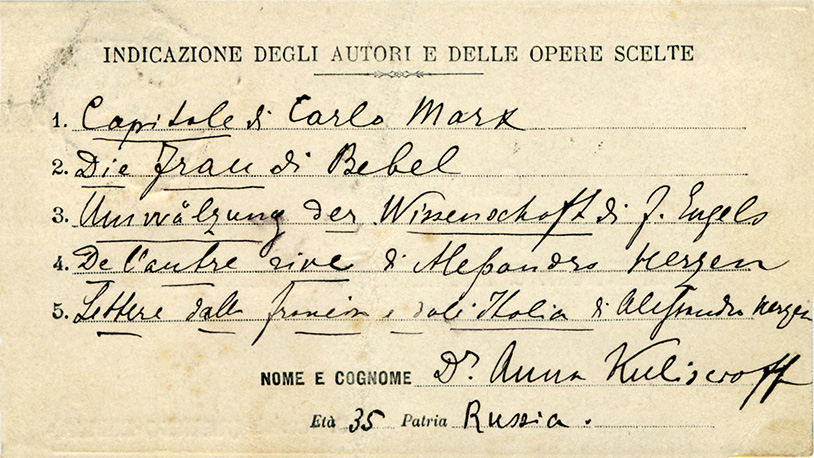 INDICAZIONE DEGLI AUTORI E DELLE OPERE SCELTE
1. Capitale di Carlo Marx
2. Die Frau di Bebel
3. Umwälzung der Wissenschaft di F. Engels
4. De l'autre rive di Alessandro Herzen
5. Lettere dalla Francia e dall'Italia di Alessandro Herzen
NOME E COGNOME Dr. Anna Kuliscioff
Età 35 Patria Russia.